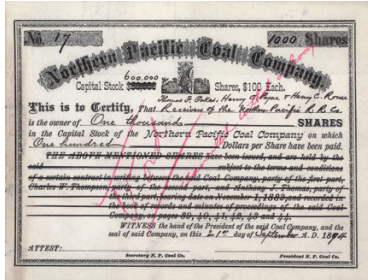 No. 17
1000 Shares
Northern Pacific Coal Company
600,000
Capital Stock $ Shares, $100 Each.
Thomas F. Oakes, Henry C. Payne & Henry C. Rouse
This is to Certify, That Receivers of the Northern Pacific R.R. Co.
is the owner of One thousand SHARES
in the Capital Stock of the Northern Pacific Coal Company on which
One hundred Dollars per Share have been paid.
THE ABOVE MENTIONED SHARES have been issued, and are held by the
said subject to the terms and conditions
of a certain contract in writing between the said Coal Company, party of the first part,
Charles W. Thompson, party of the second part, and Anthony J. Thomas, party of
the third part, bearing date on November 1, 1889, and recorded in
the book of records and minutes of proceedings of the said Coal
Company, on pages 39, 40, 41, 42, 43 and 44.
WITNESS the hand of the President of the said Coal Company, and the
seal of said Company, on this 21st day of September A. D. 1894
ATTEST:
Secretary N. P. Coal Co.
President N. P. Coal Co.